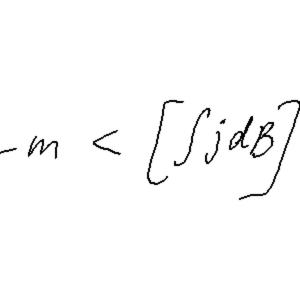 -m < [∫jdB]